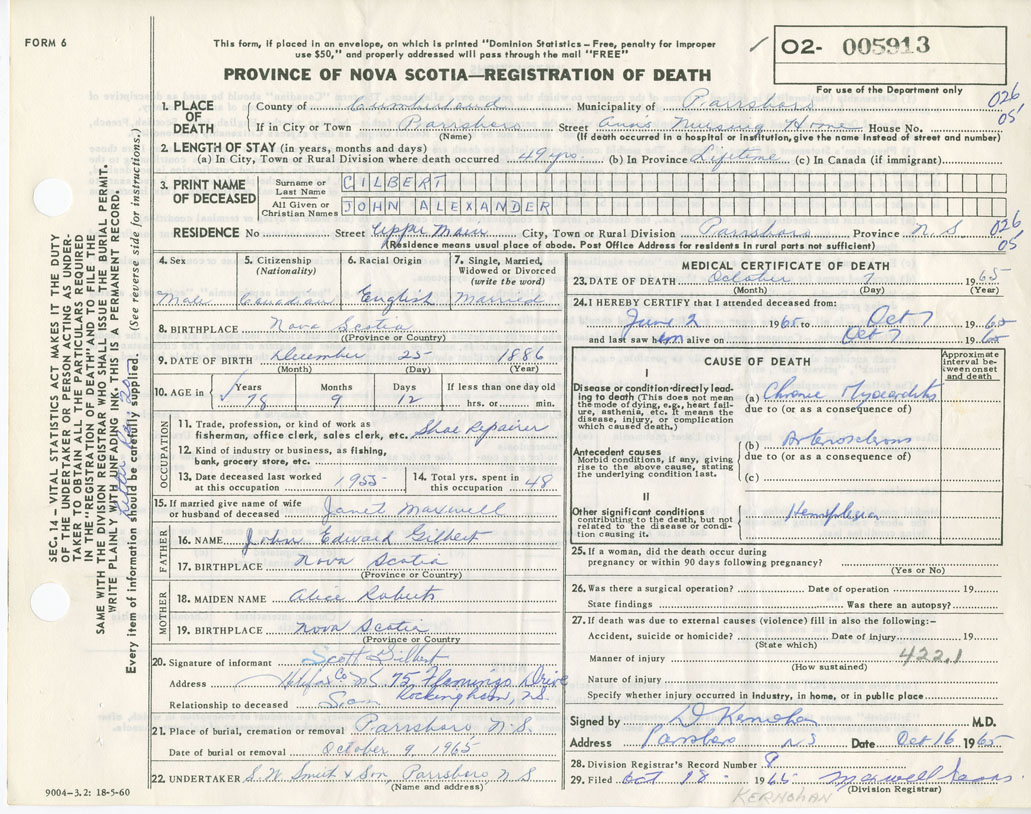 FORM 6
This form, if placed in an envelope, on which is printed "Dominion Statistics - Free, penalty for improper
use $50," and properly addressed will pass through the mail "FREE"
O2- 005913
For use of the Department only
PROVINCE OF NOVA SCOTIA—REGISTRATION OF DEATH
026
05
1. PLACE OF DEATH
County of Cumberland Municipality of Parrsboro
If in City or Town Parrsboro Street Ann's Nursing Home House No.
(Name) (If death occurred in a hospital or institution, give the name instead of street and number)
2. LENGTH OF STAY (in years, months and days)
(a) In City, Town or Rural Division where death occurred 49 yrs. (b) In Province Lifetime (c) In Canada (if immigrant)
3. PRINT NAME OF DECEASED
Surname or Last Name GILBERT
All Given or Christian Names JOHN ALEXANDER
RESIDENCE No Street Upper Main City, Town or Rural Division Parrsboro Province N S
026
05
(Residence means usual place of abode. Post Office Address for residents in rural parts not sufficient)
4. Sex 5. Citizenship (Nationality) 6. Racial Origin 7. Single, Married, Widowed or Divorced (write the word)
Male Canadian English Married
8. BIRTHPLACE Nova Scotia
(Province or Country)
9. DATE OF BIRTH December 25 1886
(Month) (Day) (Year)
10. AGE in Years Months Days If less than one day old
78 9 12 hrs. or min.
OCCUPATION
11. Trade, profession, or kind of work as
fisherman, office clerk, sales clerk, etc. Shoe Repairer
12. Kind of industry or business, as fishing,
bank, grocery store, etc.
13. Date deceased last worked at this occupation 1955 14. Total yrs. spent in this occupation 48
15. If married give name of wife
or husband of deceased Janet Maxwell
FATHER
16. NAME John Edward Gilbert
17. BIRTHPLACE Nova Scotia
(Province or Country)
MOTHER
18. MAIDEN NAME Alice Roberts
19. BIRTHPLACE Nova Scotia
(Province or Country)
20. Signature of informant Scott Gilbert
Address Halifax Co NS 75 Flamingo Drive
Rockingham, N.S.
Relationship to deceased Son
21. Place of burial, cremation or removal Parrsboro N.S.
Date of burial or removal October 9 1965
22. UNDERTAKER S. W. Smith & Son, Parrsboro N S
(Name and address)
9004-3.2: 18-5-60
MEDICAL CERTIFICATE OF DEATH
23. DATE OF DEATH October 7 1965
(Month) (Day) (Year)
24. I HEREBY CERTIFY that I attended deceased from:
June 2 1965 to Oct 7 1965
and last saw him alive on Oct 7 1965
CAUSE OF DEATH
Approximate interval between onset and death
I
Disease or condition directly leading to death (This does not mean the mode of dying, e.g., heart failure, asthenia, etc. It means the disease, injury, or complication which caused death.)
(a) Chronic Myocarditis
due to (or as a consequence of)
Antecedent causes
Morbid conditions, if any, giving rise to the above cause, stating the underlying condition last.
(b) Arteriosclerosis
due to (or as a consequence of)
(c)
II
Other significant conditions
contributing to the death, but not related to the disease or condition causing it.
Hemiplegia
25. If a woman, did the death occur during
pregnancy or within 90 days following pregnancy?
(Yes or No)
26. Was there a surgical operation? Date of operation 19
State findings Was there an autopsy?
27. If death was due to external causes (violence) fill in also the following:-
Accident, suicide or homicide? Date of injury 19
(State which)
Manner of injury 422.1
(How sustained)
Nature of injury
Specify whether injury occurred in industry, in home, or in public place
Signed by D Kernohan M.D.
Address Parrsboro NS Date Oct 16 1965
28. Division Registrar's Record Number 9
29. Filed Oct 18 1965
(Division Registrar)
KERNOHAN
SEC. 14 - VITAL STATISTICS ACT MAKES IT THE DUTY
OF THE UNDERTAKER OR PERSON ACTING AS UNDERTAKER TO OBTAIN ALL THE PARTICULARS REQUIRED
IN THE "REGISTRATION OF DEATH" AND TO FILE THE
SAME WITH THE DIVISION REGISTRAR WHO SHALL ISSUE THE BURIAL PERMIT.
WRITE PLAINLY WITH UNFADING INK. THIS IS A PERMANENT RECORD.
Every item of information should be carefully supplied. (See reverse side for instructions.)